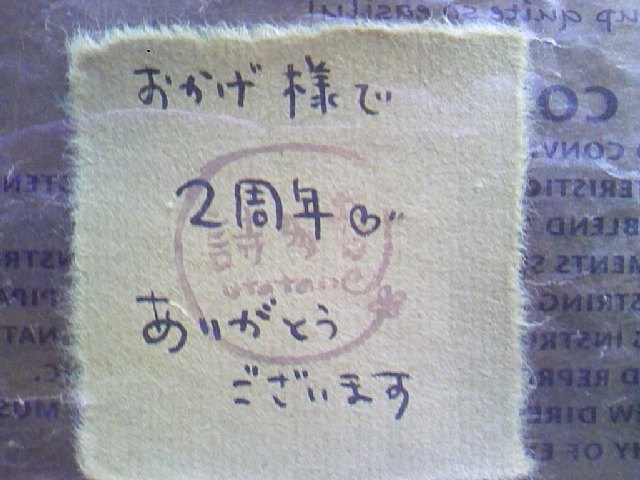 up quite so easily!
おかげ様で
2周年♡
utatane
ありがとう
ございます
CO
CONV
ERISTIC
BLEND
MENTS S
STRING
INSTR
D REPR
W DIRE
Y OF E